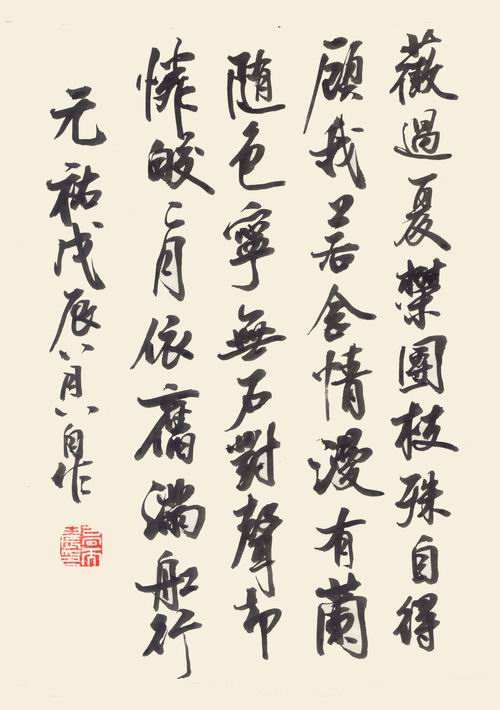 薇過夏榮團枝殊自得
顧我若含情漫有蘭
随色寧無石對聲却
憐皎〻月依舊滿船行
元祐戊辰八月八日作